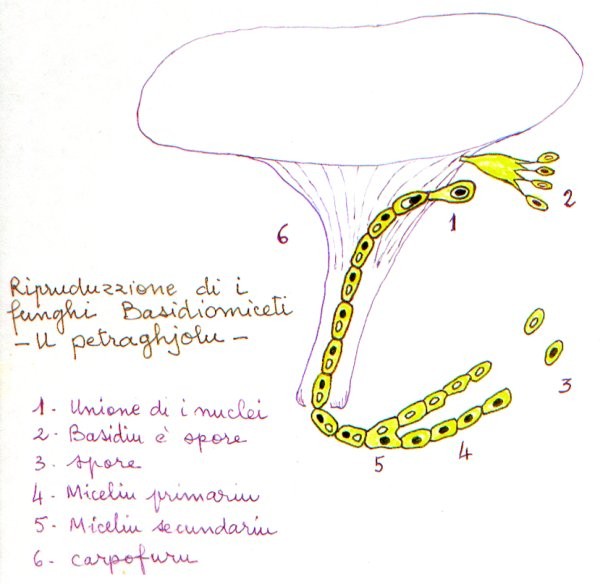 2
1
6
Ripruduzzione di i
funghi Basidiomiceti
- U petraghjolu -
3
4
5
1- Unione di i nuclei
2- Basidiu è spore
3- spore
4- Miceliu primariu
5- Miceliu secundariu
6- carpofuru